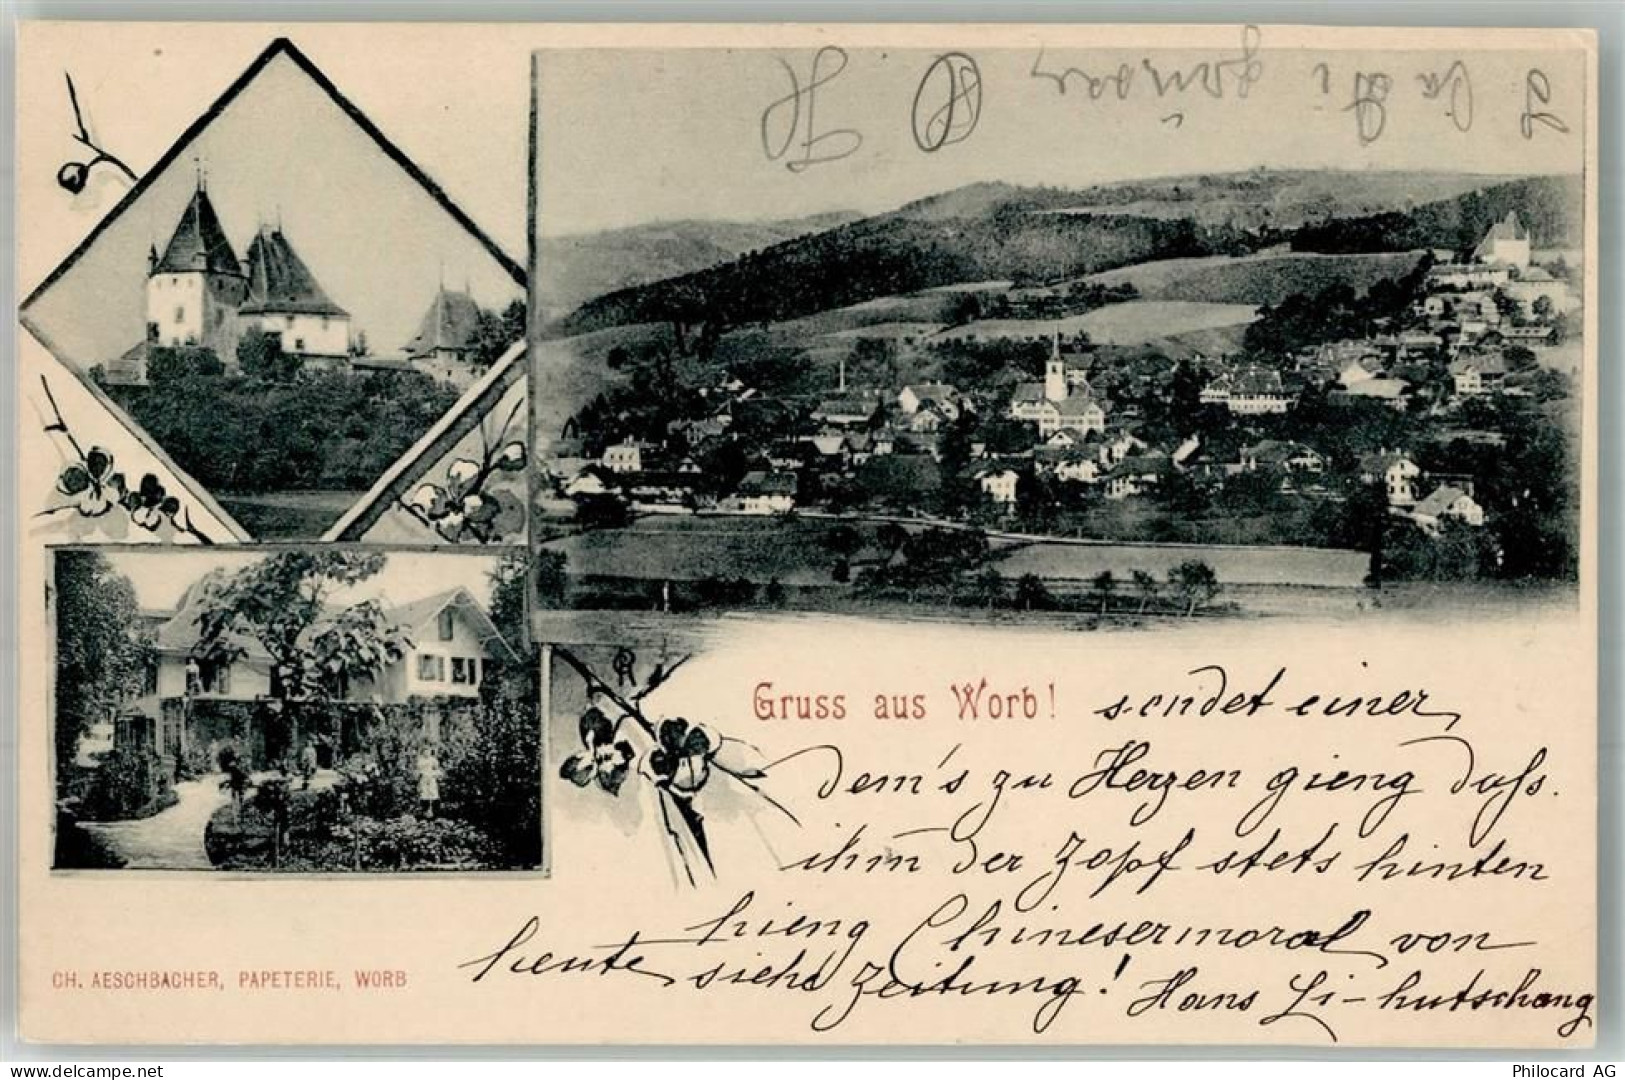 Gruss aus Worb! sendet einer,
dem's zu Herzen gieng dass.
ihm der Zopf stets hinten
hieng Chinesermoral von
heute siehe Zeitung! Hans Li-hutschang
CH. AESCHBACHER, PAPETERIE, WORB
www.delcampe.net
Philocard AG